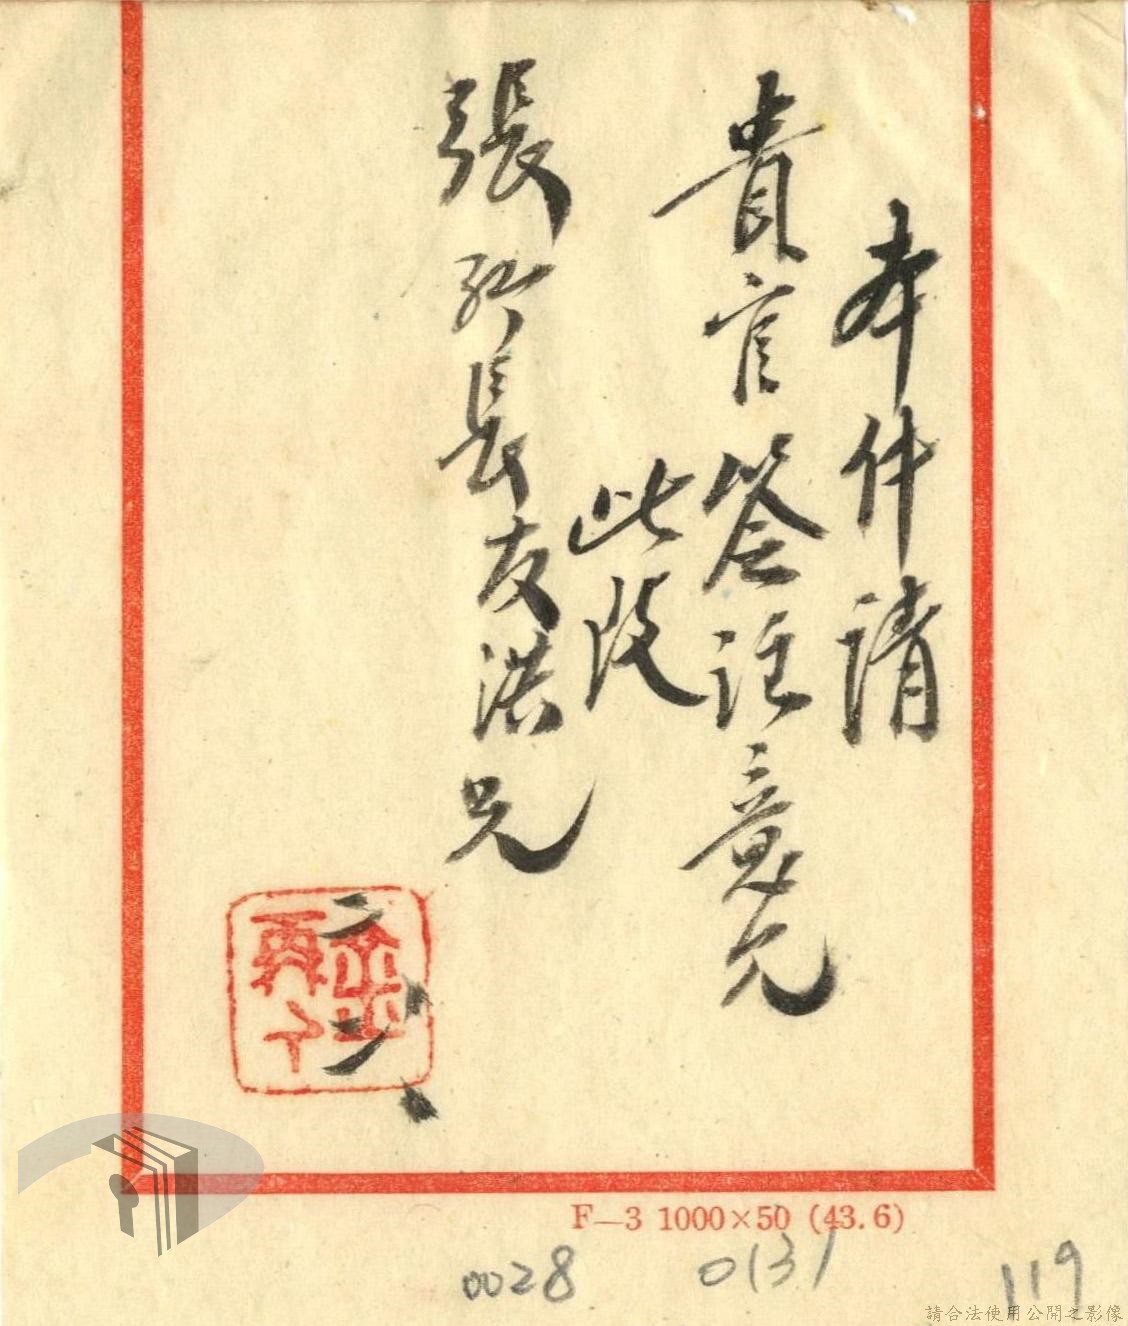 本件請
貴官簽註意見
此致
張 長友洪兄
F—3 1000×50 (43.6)
0028 0131 119
請合法使用公開之影像